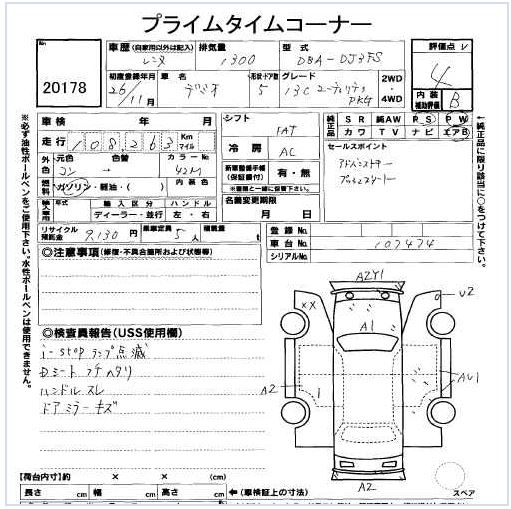 プライムタイムコーナー
20178
車歴 (自家用以外は記入) 排気量 型式 評価点
レンタ 1300 DBA-DJ3FS 4
初度登録年月 車名 形状・ドア数 グレード 2WD ・ 4WD
26/11月 デミオ 5 13C
内装補助評価 B
※必ず油性ボールペンをご使用下さい。水性ボールペンは使用できません。
車検 年 月
シフト FAT
純正品 SR 純AW PS PW
カワ TV ナビ エアB
走行 108263 Km マイル
冷房 AC
セールスポイント
アドバンストキー
プッシュスタート
←純正品に限り該当に○をつけて下さい。
外色 元色 色替 カラーNo
コン → 42M
新車整備手帳 (保証書付) 有・無
※書類と一緒に保管下さい。
燃料 ガソリン・軽油・( ) 内装色
輸入車用 年式 輸入区分 ハンドル
ディーラー・並行 左・右
名義変更期限
月 日
リサイクル預託金 9,130円 乗車定員 5人 積載量 t
登録No.
車台No. 107474
シリアルNo.
◎注意事項 (修復・不具合箇所および状態等)
◎検査員報告 (USS使用欄)
i-stopランプ点滅
Dシートフチヘタリ
ハンドルスレ
ドアミラーキズ
A2Y1
XX
U2
A1
A2
1
AU1
A2
スペア
【荷台内寸】約 × × (cm)
長さ cm 幅 cm 高さ cm ←(車検証上の寸法)